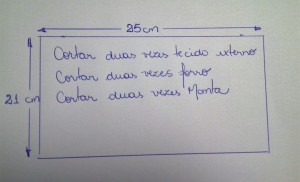 25cm
21 cm
Cortar duas vezes tecido externo
Cortar duas vezes forro
Cortar duas vezes Manta